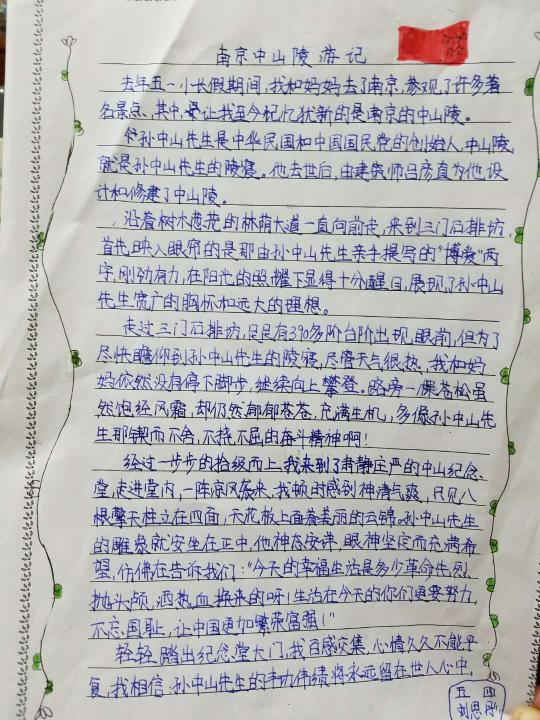 南京中山陵游记
去年五一小长假期间,我和妈妈去了南京,参观了许多著
名景点,其中,最让我至今记忆犹新的是南京的中山陵。
孙中山先生是中华民国和中国国民党的创始人,中山陵
就是孙中山先生的陵寝。他去世后,由建筑师吕彦直为他设
计和修建了中山陵。
沿着树木葱茏的林荫大道一直向前走,来到三门石排坊,
首先映入眼帘的是那由孙中山先生亲手提写的“博爱”两
字,刚劲有力,在阳光的照耀下显得十分醒目,展现了孙中山
先生宽广的胸怀和远大的理想。
走过三门石排坊,足足有390多阶台阶出现,眼前,但为了
尽快瞻仰到孙中山先生的陵寝,尽管天气很热,我和妈
妈依然没有停下脚步,继续向上攀登。路旁一棵苍松虽
然饱经风霜,却仍然郁郁苍苍,充满生机,多像孙中山先
生那锲而不舍,不挠不屈的奋斗精神啊!
经过一步步的拾级而上,我来到了肃静庄严的中山纪念
堂,走进堂内,一阵凉风袭来,我顿时感到神清气爽,只见八
根擎天柱立在四面,天花板上画着美丽的云锦。孙中山先生
的雕象就安坐在正中,他神态安详,眼神坚定而充满希
望,仿佛在告诉我们:“今天的幸福生活是多少革命先烈
抛头颅,洒热血换来的呀!生活在今天的你们更要努力,
不忘国耻,让中国更加繁荣富强!”
轻轻踏出纪念堂大门,我百感交集,心情久久不能平
复,我相信:孙中山先生的丰功伟绩将永远留在世人心中,
五四
刘思彤